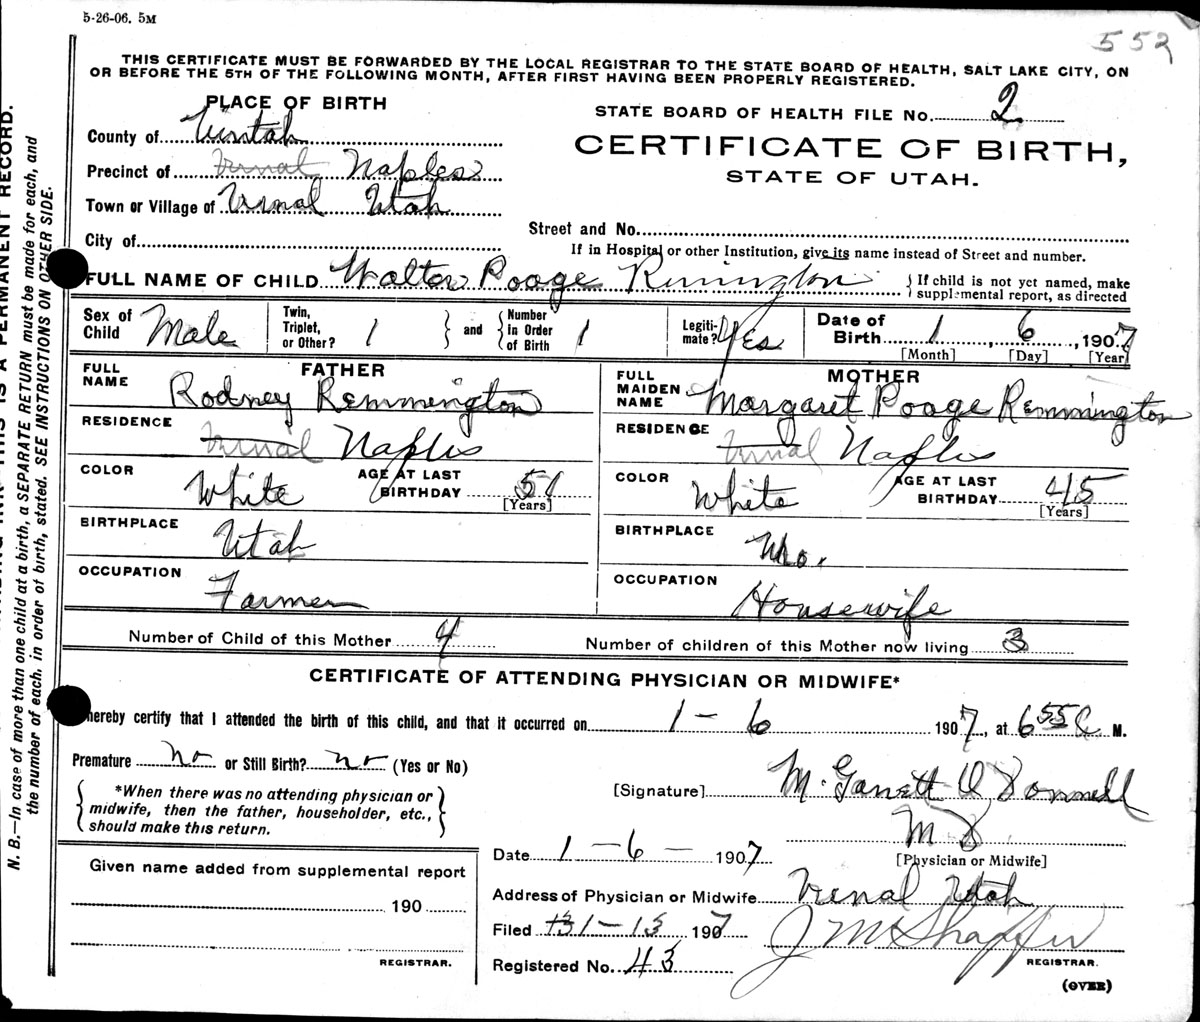 5-26-06. 5M
552
THIS CERTIFICATE MUST BE FORWARDED BY THE LOCAL REGISTRAR TO THE STATE BOARD OF HEALTH, SALT LAKE CITY, ON
OR BEFORE THE 5TH OF THE FOLLOWING MONTH, AFTER FIRST HAVING BEEN PROPERLY REGISTERED.
PLACE OF BIRTH
STATE BOARD OF HEALTH FILE No. 2
County of Uintah
CERTIFICATE OF BIRTH,
Precinct of Vernal Naples
STATE OF UTAH.
Town or Village of Vernal Utah
Street and No.
City of
If in Hospital or other Institution, give its name instead of Street and number.
FULL NAME OF CHILD Walter Poage Remington
{ If child is not yet named, make
supplemental report, as directed
Sex of Child Male
Twin, Triplet, or Other? 1 } and { Number in Order of Birth 1
Legiti-mate? Yes
Date of Birth 1, 6, 1907
[Month] [Day] [Year]
FATHER
MOTHER
FULL NAME Rodney Remmington
FULL MAIDEN NAME Margaret Poage Remmington
RESIDENCE Vernal Naples
RESIDENCE Vernal Naples
COLOR White AGE AT LAST BIRTHDAY 51 [Years]
COLOR White AGE AT LAST BIRTHDAY 45 [Years]
BIRTHPLACE Utah
BIRTHPLACE Mo.
OCCUPATION Farmer
OCCUPATION Housewife
Number of Child of this Mother 4 Number of children of this Mother now living 3
CERTIFICATE OF ATTENDING PHYSICIAN OR MIDWIFE*
hereby certify that I attended the birth of this child, and that it occurred on 1 - 6 1907, at 6 55 M.
Premature no or Still Birth? no (Yes or No)
{ *When there was no attending physician or
midwife, then the father, householder, etc.,
should make this return. }
[Signature] M. Garrett O Donnell
M D
[Physician or Midwife]
Date 1 - 6 - 1907
Given name added from supplemental report
190
REGISTRAR.
Address of Physician or Midwife Vernal Utah
Filed 1-13 1907 J M Shaffer
REGISTRAR.
Registered No. 43
(OVER)
N. B.—In case of more than one child at a birth, a SEPARATE RETURN must be made for each, and
the number of each, in order of birth, stated. SEE INSTRUCTIONS ON OTHER SIDE.
THIS IS A PERMANENT RECORD.